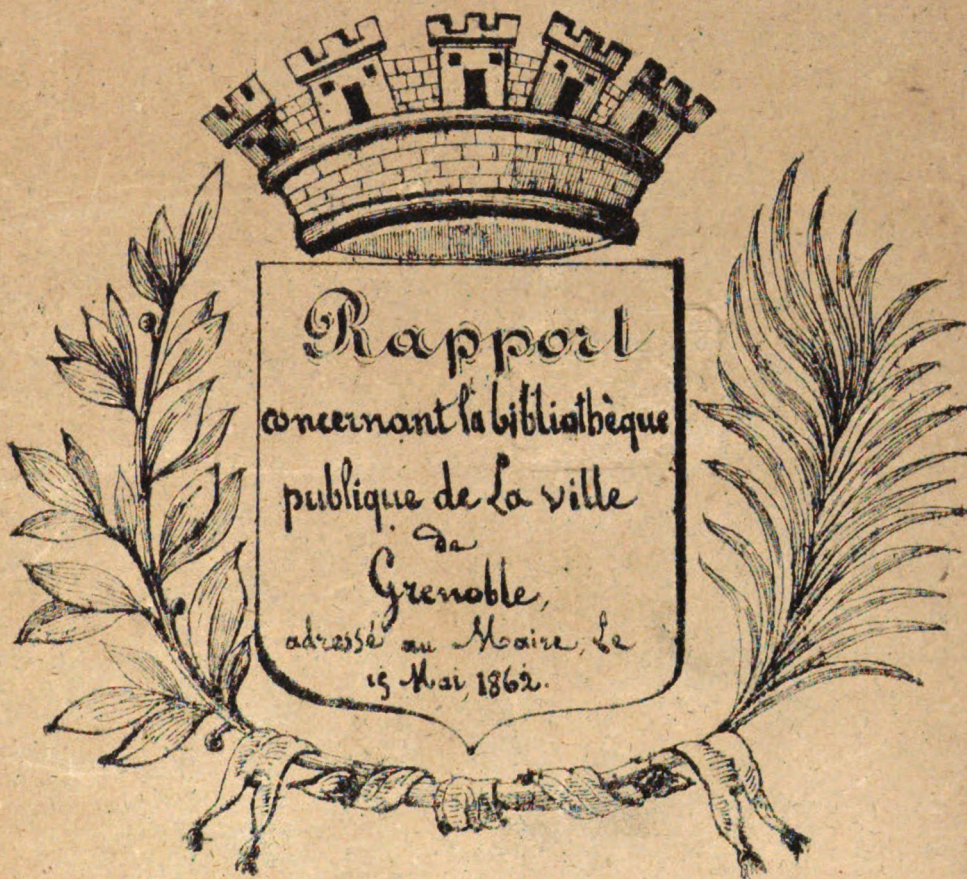 Rapport
concernant la bibliothèque
publique de La ville
de
Grenoble,
adressé au Maire, Le
15 Mai, 1862.